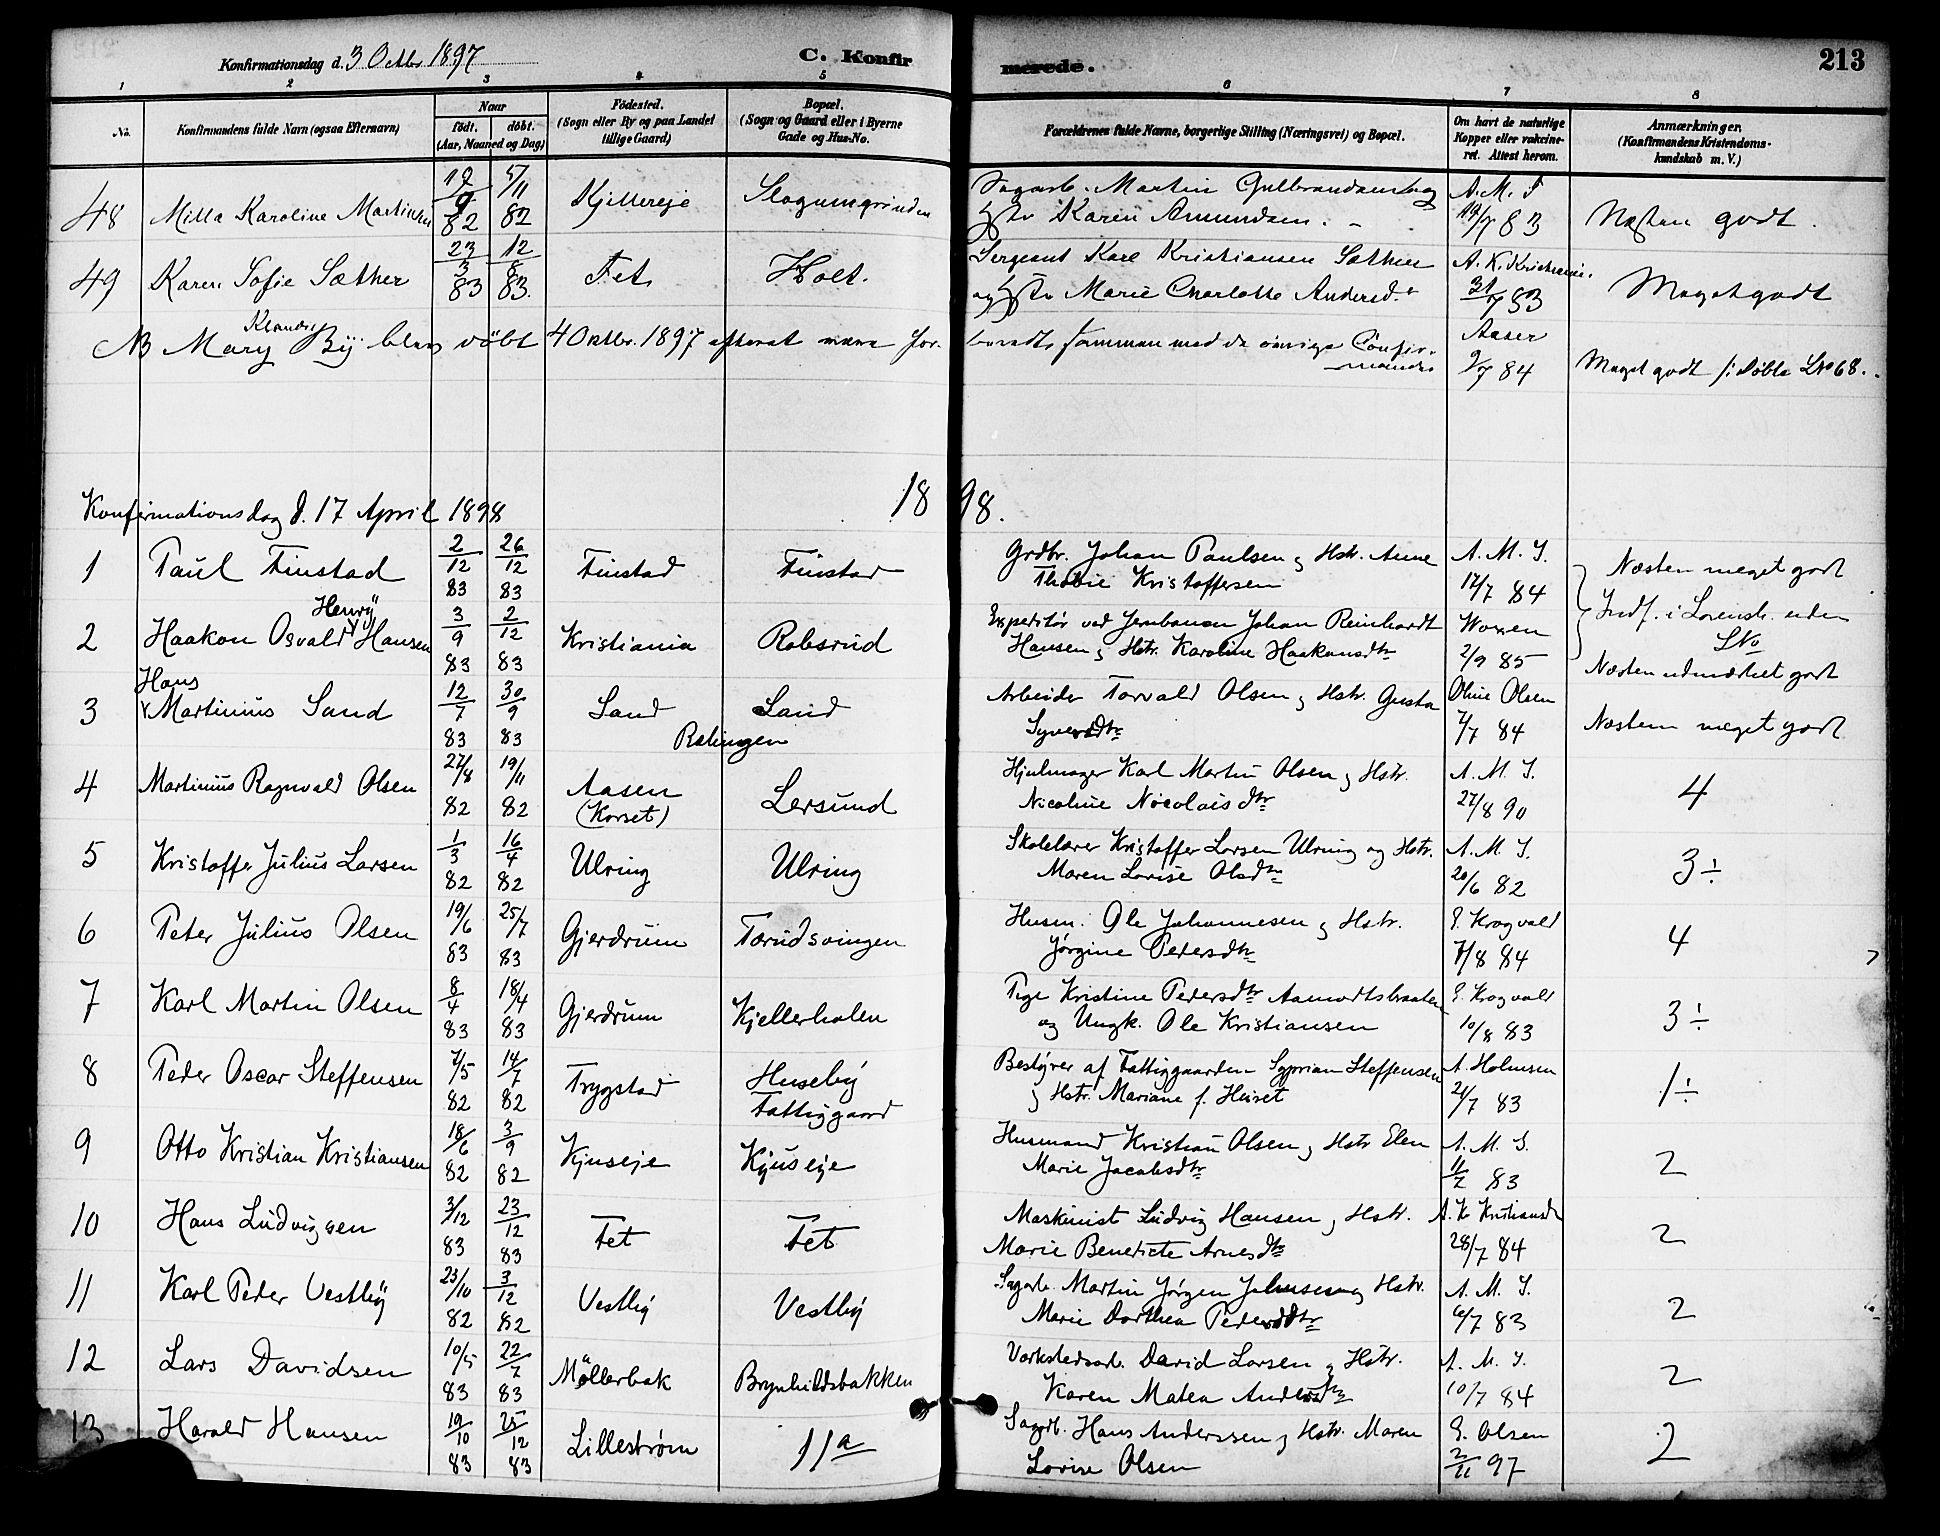 Konfirmationsdag d. 3 Octbr 1897
C. Konfirmerede.
213
1 2 3 4 5 6 7 8
No.
Konfirmandens fulde Navn (ogsaa Efternavn)
Naar
født. døbt.
(Aar, Maaned og Dag)
Fødested.
(Sogn eller By og paa Landet
tillige Gaard)
Bopæl.
(Sogn og Gaard eller i Byerne
Gade og Hus-No.
Forældrenes fulde Navne, borgerlige Stilling (Næringsvei) og Bopæl.
Om havt de naturlige
Kopper eller vaccine-
ret. Attest herom.
Anmærkninger.
(Konfirmandens Kristendoms-
kundskab m. V.)
48 Milla Karoline Martinsen 82 5/11 82 Kjillereje Slagumgrinden Sagarb. Martin Gulbrandsen og
Hstr Karen Amundsen. A. M. 19/7 83 Næsten godt.
49 Karen Sofie Sæther 23/3 83 12/8 83. Fet Holt. Sergeant Karl Kristiansen Sæther
og Hstr Marie Charlotte Andersd. A. K. 31/7 83 Meget godt
NB Mary Klaudie Bÿ blev døbt 4 Oktbr. 1897 efterat være for-
beredt sammen med de øvrige Confir-
mander Aaser 9/7 84 Meget godt /: døbte LNo 68.
Konfirmationsdag d. 17 April 1898
1898.
1 Paul Finstad 2/12 83 26/12 83 Finstad Finstad Grdbr. Johan Paulsen og Hstr. Anne
Thobie Kristoffersen A. M. S. 17/7 84 Næsten meget godt
2 Haakon Osvald Henrÿ Hansen 3/9 83 2/12 83 Kristiania Robsrud Expeditør ved Jernbanen Johan Reinhardt
Hansen og Hstr. Karoline Haakonsdtr Woxen 2/9 85 Indf. i Lorensk. uden
LNo
Næsten udmærket godt
3 Hans Martinius Sand 12/7 83 30/9 83 Sand Sand
Rælingen Arbeider Torvald Olsen og Hstr. Gusta
Syversdtr Oline Olsen 7/7 84 Næsten meget godt
4 Martinius Ragnvald Olsen 27/8 82 19/11 82 Aasen
(Korset) Lersund Hjulmager Karl Martin Olsen og Hstr.
Nicoline Nicolaisdtr A. M. S. 27/8 90 4
5 Kristoffer Julius Larsen 1/3 82 16/4 82 Ulring Ulring Skolelærer Kristoffer Larsen Ulring og Hstr.
Maren Lovise Olsdtr A. M. S. 20/6 82 3÷
6 Peter Julius Olsen 19/6 83 25/7 83 Gjerdrum Torudsvingen Husm. Ole Johannesen og Hstr.
Jørgine Pedersdtr E. Krogvald 7/8 84 4
7 Karl Martin Olsen 8/4 83 18/4 83 Gjerdrum Kjellerholen Pige Kristine Pedersdtr Aamodtsbraaten
og Ungk. Ole Kristiansen E. Krogvald 10/8 83 3÷
8 Peder Oscar Steffensen 7/5 82 14/7 82 Trygstad Huseby
Fattiggaard Bestyrer af Fattiggaarden Syprian Steffensen
og Hstr. Mariane f. A. Holmsen 21/7 83 1÷
9 Otto Kristian Kristiansen 18/6 82 3/9 82 Kjuseje Kjuseje Husmand Kristian Olsen og Hstr Elen
Marie Jacobsdtr A. M. S. 83 2
10 Hans Ludvigsen 3/12 83 23/12 83 Fet Fet Maskinist Ludvig Hansen og Hstr.
Marie Benedicte Arnesdtr A. K. 28/7 84 2
11 Karl Peder Vestbÿ 23/10 82 3/12 82 Vestby Vestbÿ Sagarb. Martin Jørgen Johnsen og Hstr.
Marie Dorthea Pedersdtr A. M. S. 6/7 83 2
12 Lars Davidsen 10/5 83 22/7 83 Møllerbak Brynhildsbakken Værkstedsarb. David Larsen og Hstr.
Karen Matea Andersdtr A. M. S. 10/7 84 2
13 Harald Hansen 19/10 83 25/12 83 Lillestrøm 11a Sagarb. Hans Anderssen og Hstr. Maren
Lovise Olsen E. Olsen 2/11 97 2